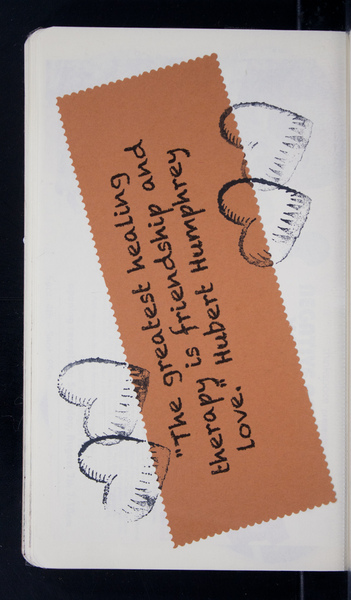 "The greatest healing
therapy is friendship and
Love. Hubert Humphrey